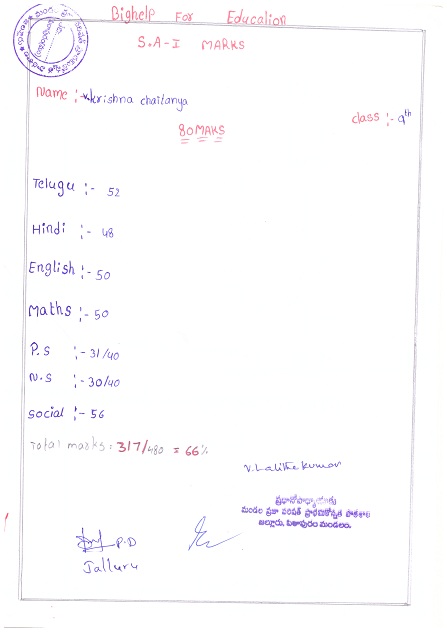 Bighelp For Education
S.A-I MARKS
Name :- V.krishna chaitanya
class :- 9th
80 MAKS
Telugu :- 52
Hindi :- 48
English :- 50
Maths :- 50
P.S :- 31/40
N.S :- 30/40
social :- 56
Total marks = 317/480 = 66%
V. Lalithe kumar
ప్రధానోపాధ్యాయుడు
మండల ప్రజా పరిషత్ ప్రాథమికోన్నత పాఠశాల
జల్లూరు, పిఠాపురం మండలం.
P.D
Jalluru